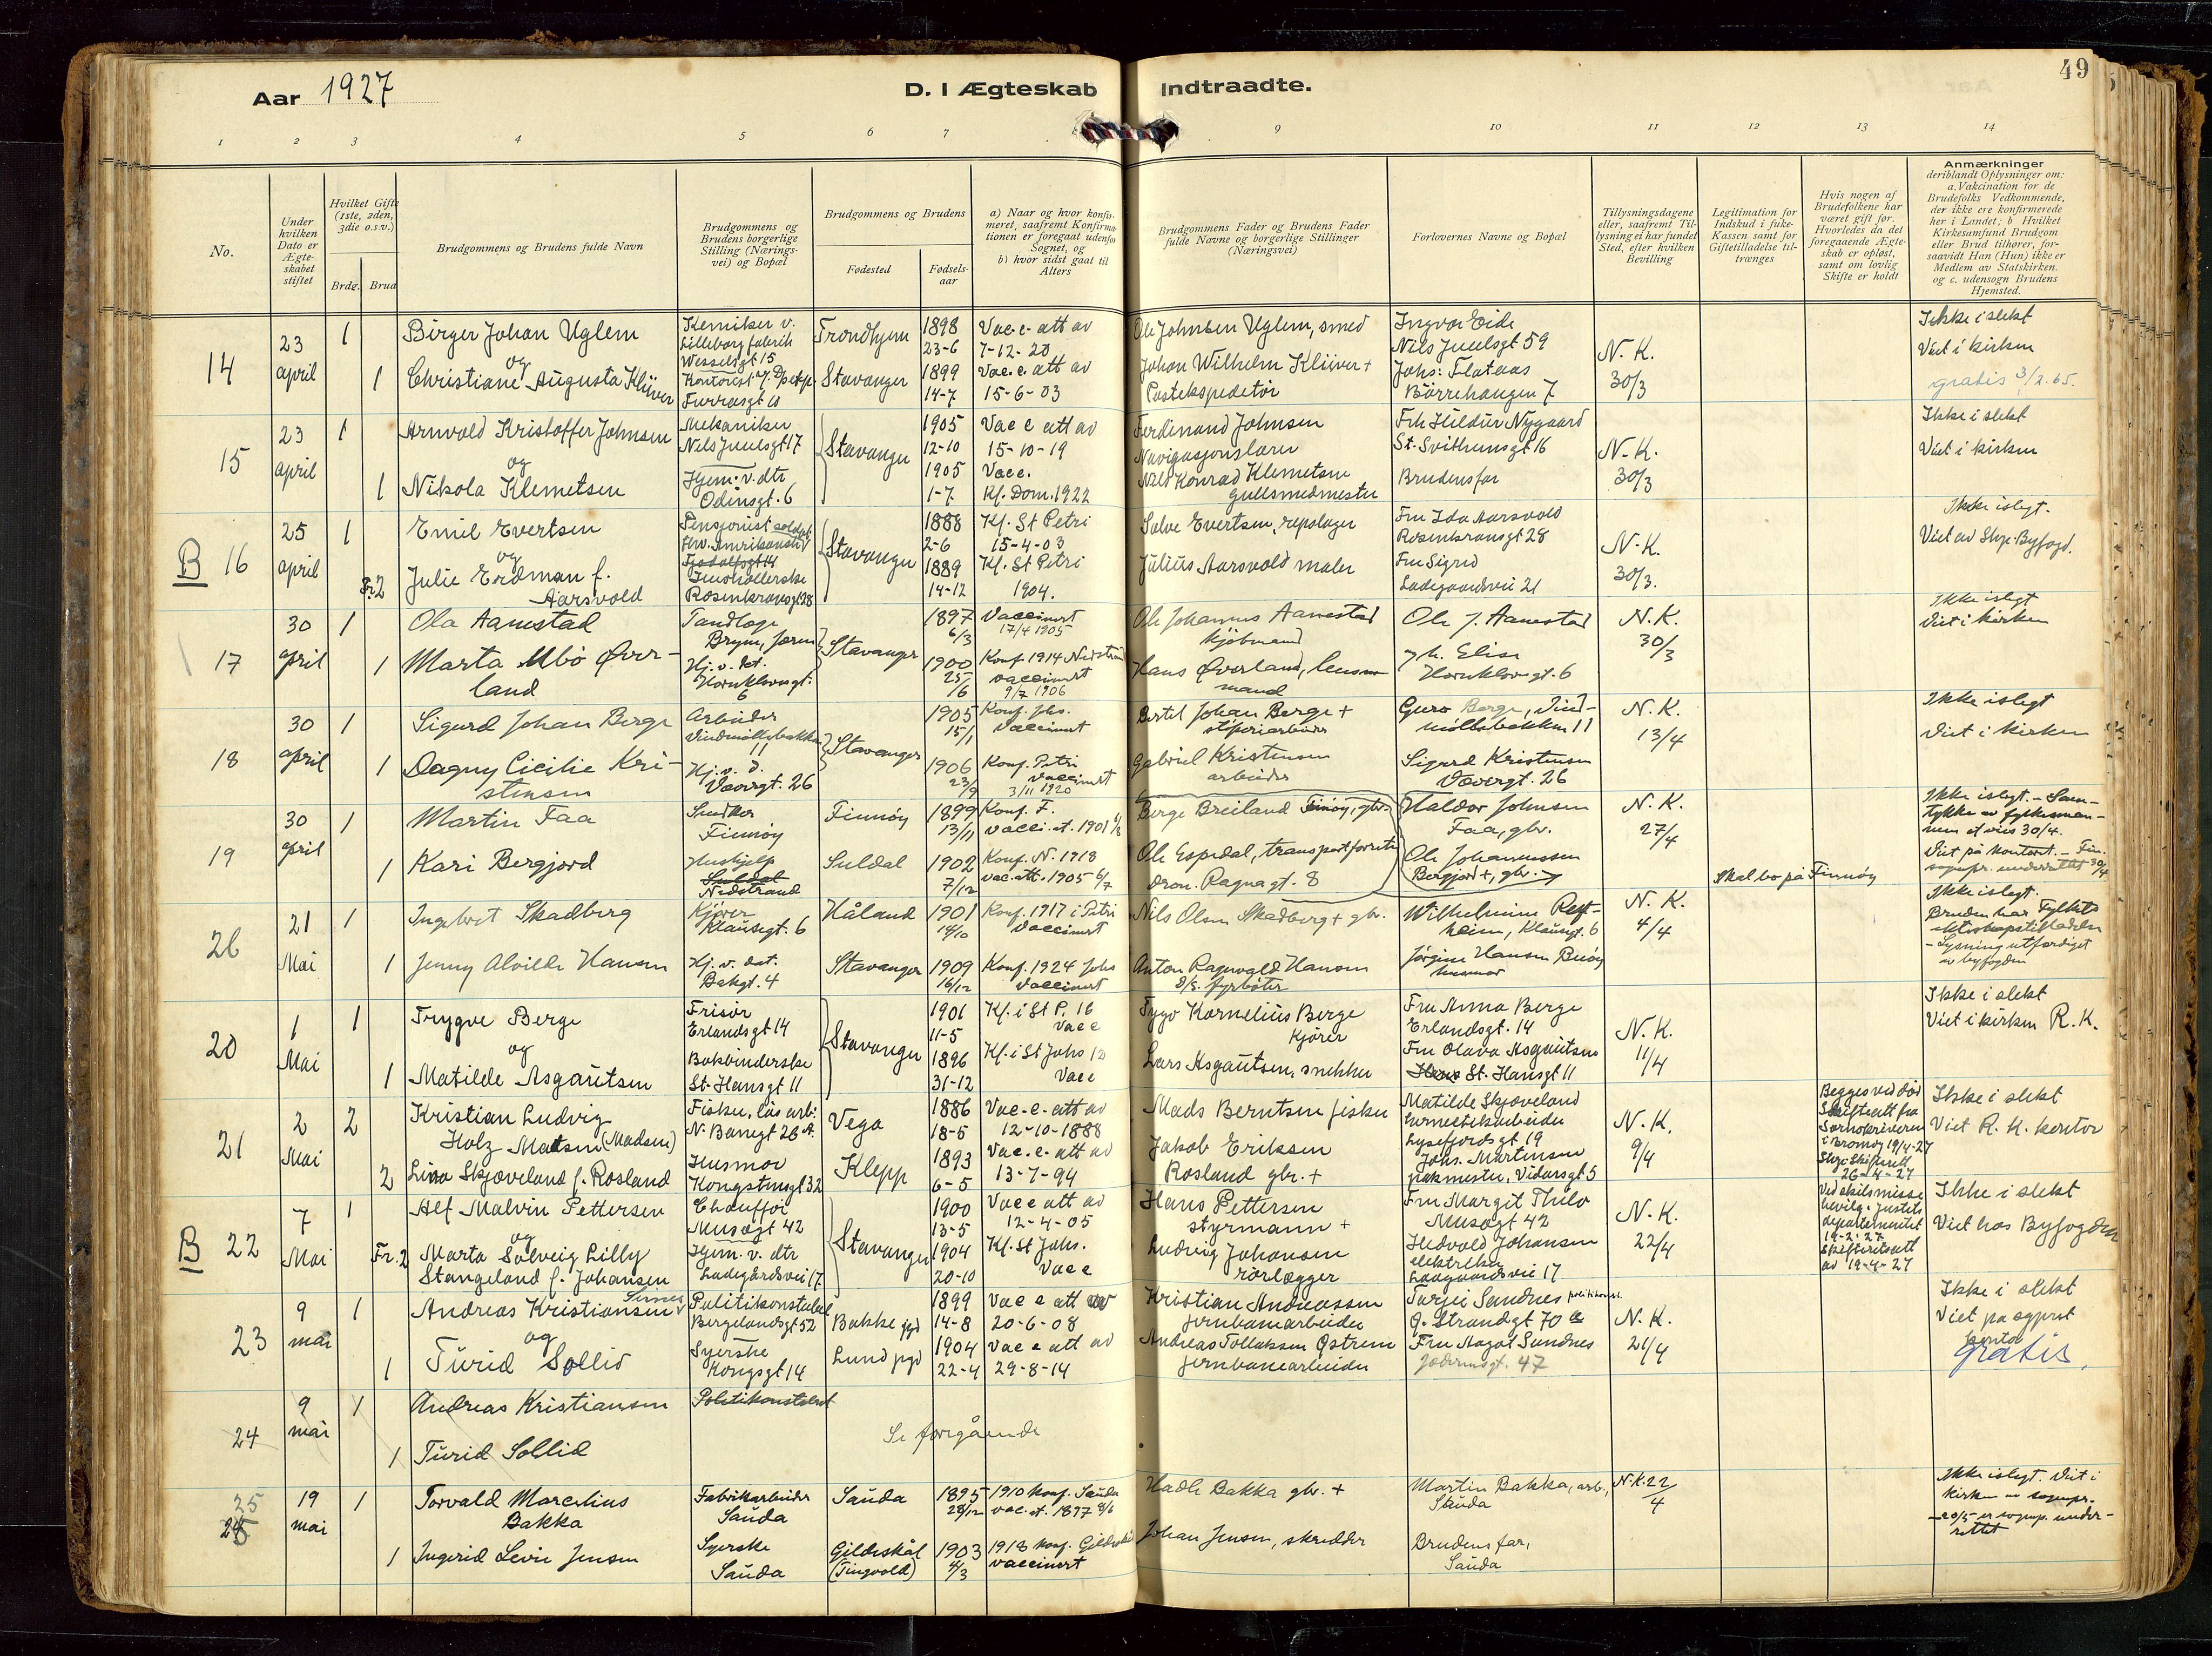 49
Aar 1927
D. I Ægteskab Indtraadte.
1 2 3 4 5 6 7 9 10 11 12 13 14
No.
Under hvilken Dato er Ægte-skabet stiftet
Hvilket Gifte (1ste, 2den, 3die o.s.v.)
Brdg. Brud
Brudgommens og Brudens fulde Navn
Brudgommens og Brudens borgerlige Stilling (Nærings-vei) og Bopæl
Brudgommens og Brudens
Fødested
Fødsels-aar
a) Naar og hvor konfir-meret, saafremt Konfirma-tionen er foregaat udenfor Sognet, og b) hvor sidst gaat til Alters
Brudgommens Fader og Brudens Fader fulde Navne og borgerlige Stillinger (Næringsvei)
Forlovernes Navne og Bopæl
Tillysningsdagene eller, saafremt Til-lysning ei har fundet Sted, efter hvilken Bevilling
Legitimation for Indskud i fuke-Kassen samt for Giftetilladelse til-trænges
Hvis nogen af Brudefolkene har været gift før. Hvorledes da det foregaaende Ægte-skab er opløst, samt om lovlig Skifte er holdt
Anmærkninger
deriblandt Oplysninger om: a. Vakcination for de Brudefolks Vedkommende, der ikke ere konfirmerede her i Landet; b Hvilket Kirkesamfund Brudgom eller Brud tilhører, for-saavidt Han (Hun) ikke er Medlem av Statskirken. og c. udensogn Brudens Hjemsted.
14
23 april
1
Birger Johan Uglem
og
1
Christiane Augusta Klüver
Kemiker v. Lilleborg fabrik
Wesselsgt 15
Trondhjem
Stavanger
1898
23-6
1899
14-7
Vac. e. att av
7-12-20
Vac. e. att av
15-6-03
Ole Johnsen Uglem, smed
Johan Wilhelm Klüver +
Postekspeditør
Ingvar Eide
Nils Juulsgt 59
Johs: Flataas
Børrehaugen 7
N. K.
30/3
Ikke i slekt
Viet i kirken
gratis 3/2.65.
15
23 april
1
Arnvold Kristoffer Johnsen
og
1
Nikola Klemetsen
Mekaniker
Nils Juulsgt 17
Hjem. v. dtr
Odinsgt. 6
Stavanger
1905
12-10
1905
1-7
Vac e att av
15-10-19
Vacc.
Kf. Dom. 1922
Ferdinand Johnsen
Navigasjonslærer
Nils Konrad Klemetsen
gullsmedmester
Frk Hildur Nygaard
St. Svithunsgt 16
Brudens far
N.K.
30/3
Ikke i slekt
Viet i kirken
B 16
25 april
1
Emil Evertsen
og
Fr. 2
Julie Erdman f.
Aarsvold
Pensjonist soldat
Rosenkransgt 28
Stavanger
1888
2-6
1889
14-12
Kf. St Petri
15-4-03
Kf. St Petri
1904.
Salve Evertsen, repslager
Julius Aarsvold maler
Fru Ida Aarsvold
Rosenkransgt 28
Fru Sigrid
Ladegaardsvei 21
N.K.
30/3.
Ikke i slegt.
Viet av Stvgr. Byfogd.
17
30 april
1
Ola Aanestad
1
Marta Ubø Øver-
land
Tandlæge
Bryne, Jæren
Hj. v. dat.
Hornklovsgt.
6
Stavanger
1897
6/3
1900
25/6
Vaccinert
17/4 1905
Konf. 1914 Nedstrand
vaccinert
9/7 1906
Ole Johannes Aanestad
kjøbmand
Hans Øverland, lens-
mand
Ole J. Aanestad
Hornklovsgt. 6
N.K.
30/3
Ikke i slegt
Viet i kirken
18
30 april
1
Sigurd Johan Berge
1
Dagny Cicilie Kri-
stensen
Arbeider
Vindmøllebakken
11
Hj. v. d.
Vævergt. 26
Stavanger
1905
15/1
1906
23/9
Konf. Johs.
Vaccinert
Konf. Petri
Vaccinert
3/11 1920
Bertel Johan Berge +
støperiarbeider
Gabriel Kristensen
arbeider
Guro Berge, Vind-
møllebakken 11
Sigurd Kristensen
Vævergt. 26
N. K.
13/4
Ikke i slegt
Viet i kirken
19
30 april
1
Martin Faa
1
Kari Bergjord
Snedker
Finnøy
Hushjelp
Suldal
Nedstrand
Finnøy
Suldal
1899
13/11
1902
7/12
Konf. F.
vacci. at. 1901
Konf. N. 1918
vac. att. 1905 6/7
Berge Breiland Finnøy, gbr.
Ole Espedal, transportforret.
Dron. Ragnagt. 8
Haldor Johnsen
Faa, gbr.
Ole Johannessen
Bergjord +, gbr.
N. K.
27/4
Skal bo på Finnøy
Ikke i slegt. - Sam-
tykke av fylkesman-
nen at vies 30/4.
Viet på kontoret. - Fin.
sognepr. underrettet 30/4
26
21 Mai
1
Ingebret Skadberg
1
Jenny Alvilde Hansen
Kjører
Klausgt. 6
Hj. v. dat.
Bakgt. 4
Håland
Stavanger
1901
14/10
1909
16/12
Konf. 1917 i Petri
Vaccinert
Konf. 1924 Johs
Vaccinert
Nils Olsen Skadberg + gbr.
Anton Ragnvald Hansen
d/s. fyrbøter
Wilhelmine Reft-
heim, Klausgt. 6
Jørgine Hansen Buøy
husmor
N. K.
4/4
Ikke i slegt.
Bruden har Fylkets
ekteskapstilladelse
- Lysning utferdiget
av byfogden
20
1 Mai
1
Trygve Berge
og
1
Matilde Asgautsen
Frisør
Erlandsgt 14
Bokbinderske
St. Hansgt 11
Stavanger
1901
11-5
1896
31-12
Kf. i St P. 16
Vacc
Kf. i St Johs 12
Vacc
Kornelius Berge
kjører
Lars Asgautsen, snekker
Fru Anna Berge
Erlandsgt. 14
Fru Olava Asgautsen
St. Hansgt 11
N. K.
11/4
Ikke i slekt
Viet i kirken R. K.
21
2 Mai
2
Kristian Ludvig
Holz Matsen (Madsen)
2
Lina Skjæveland f. Rosland
Fisker, løs arb.
N. Banegt 26 A.
Husmor
Kongstensgt 32
Vega
Klepp
1886
18-5
1893
6-5
Vac. e. att av
12-10-1888
Vac. e. att av
13-7-94
Mads Berntsen fisker
Jakob Eriksen
Rosland gbr. +
Matilde Skjæveland
hermetikkarbeider
Lysefjordsgt 19
Johs. Martinsen
pakmester, Vidarsgt 5
N. K.
9/4
Begges ved død
Skifteatt fra
Sorenskriveren
i Brønnøy 19/4-27
Stvgr. Skifterett
26-4-27
Ikke i slekt
Viet R. K. kontor
B 22
7 Mai
1
Alf Malvin Pettersen
og
Fr. 2
Marta Solveig Lilly
Stangeland f. Johansen
Chauffør
Musegt 42
Hjem. v. dtr
Ladegårdsvei 17
Stavanger
1900
13-5
1904
20-10
Vacc att av
12-4-05
Kf. St Johs.
Vacc
Hans Pettersen
styrmann +
Ludvig Johansen
rørlægger
Fru Margit Thilo
Musegt 42
Hedvald Johansen
elektriker
Ladegaardsvei 17
N. K.
22/4
Ved skilsmisse
bevilg. Justits
departementet
19-2-27
Skifterettsatt
av 19-4-27
Ikke i slekt
Viet hos Byfogden
23
9 mai
1
Andreas Kristiansen
og
1
Turid Sollid
Politikonstabel
Bergelandsgt 52
Syerske
Kongsgt 14
Bakke pgd
Lund pgd
1899
14-8
1904
22-4
Vac e att av
20-6-08
Vac e att av
29-8-14
Kristian Andreassen
jernbanearbeider
Andreas Tollaksen Østrem
jernbanearbeider
Tarjei Sandnes politikonst.
Ø. Strandgt 70
Fru Magot Sandnes
Jæderensgt. 47
N. K.
21/4
Ikke i slekt
Viet pa sogprst
kontor
Gratis.
24
9 mai
1
Andreas Kristiansen
1
Turid Sollid
Politikonstabel
Se foregående
25
19 mai
1
Torvald Marcelius
Bakka
1
Ingerid Levie Jensen
Fabrikarbeider
Sauda
Syerske
Sauda
Sauda
Gildeskål
(Tingvold)
1895
28/12
1903
4/3
1910 konf. Sauda
vac. at. 1897 8/6
1918 konf. Gildeskål
vaccinert
Hadle Bakka gbr. +
Johan Jensen, skredder
Martin Bakka, arb.,
Sauda
Brudens far,
Sauda
N. K. 22/4
Ikke i slegt. Viet i
kirken av sognepr.
- 20/5 er sognep. under-
rettet